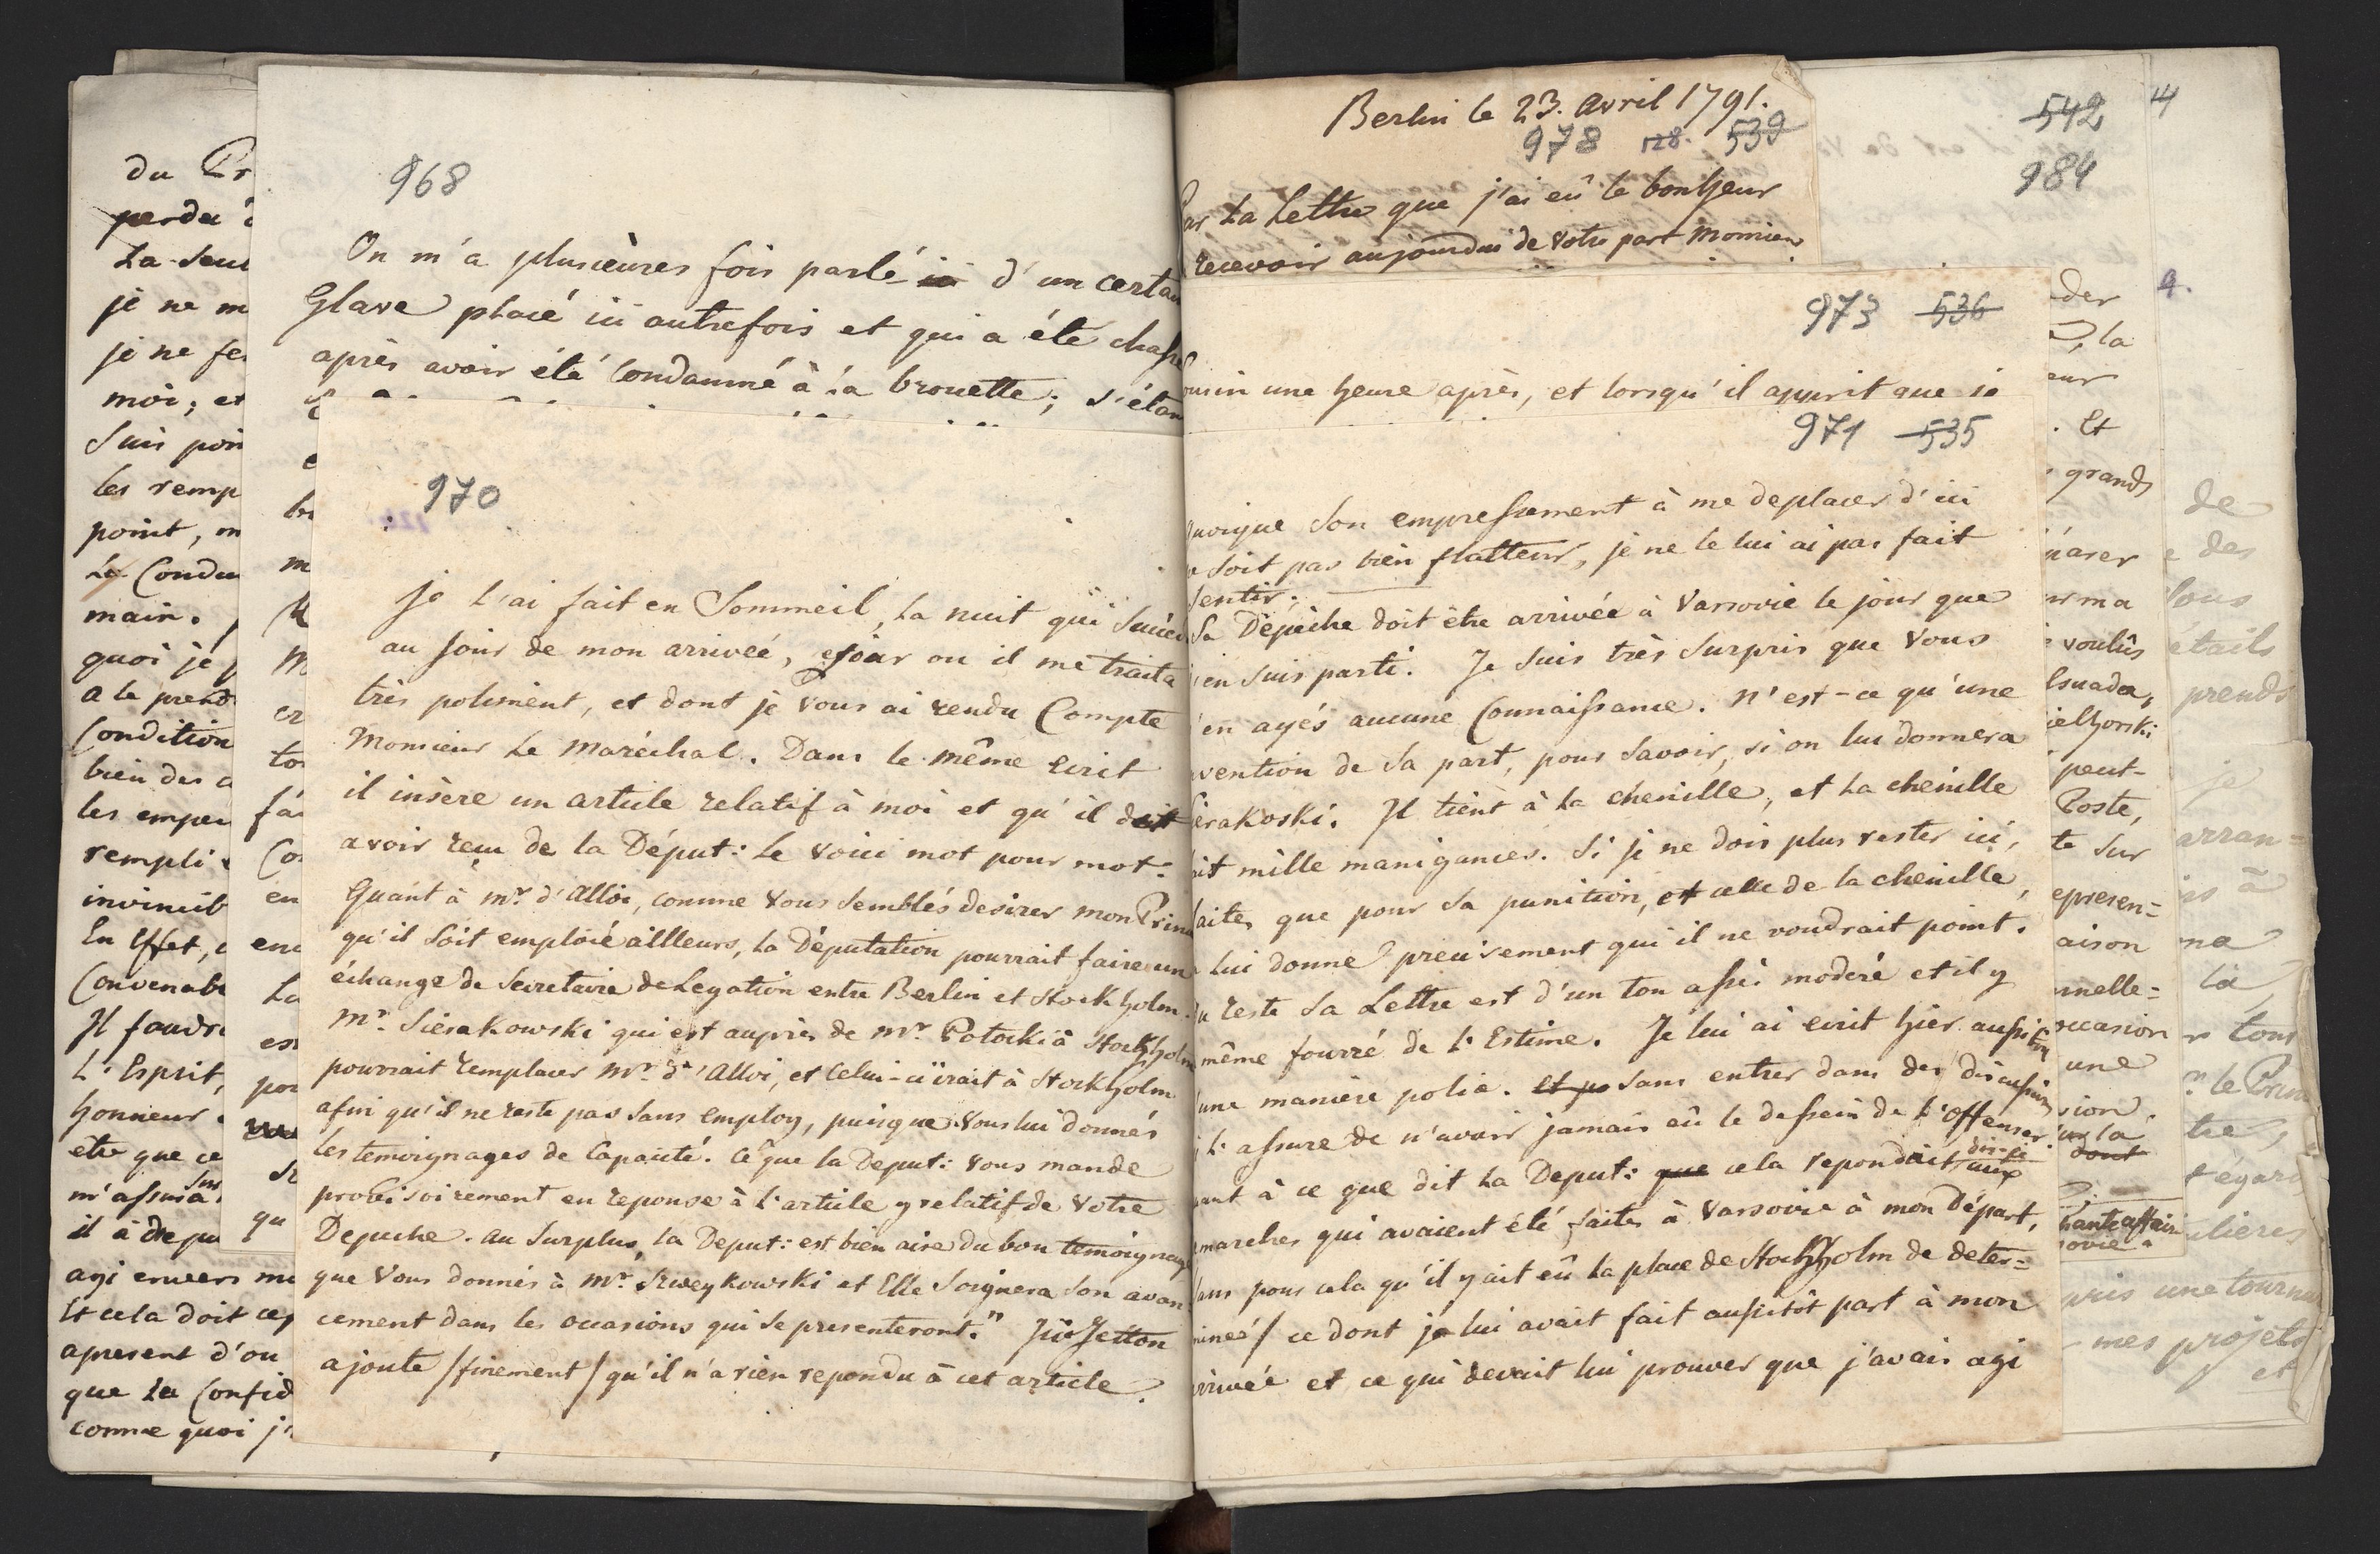 du Pr
perdu
La seul
je ne m
je ne fe
moi, et
Suis poin
les remp
point, m
La Condu
main.
quoi je
a le prend
Condition
bien des
les emper
rempli
invincib
En Effet,
Convenab
Il faudr
L'Esprit,
honneur
être que ce
sur
m'assura
il à depu
agi envers me
Et cela doit cep
apresent d'ou
que la Confid
comme quoi j'
968
On m'a plusieures fois parlé d'un certai
Glave placé ici autrefois et qui a été chassé
après avoir été Condamné à la brouette; s'étan
970
je l'ai fait en Sommeil, la nuit qui succe
au jour de mon arrivée, jour ou il me traita
très poliment, et dont je vous ai rendu Compte
Monsieur Le Maréchal. Dans le même ecrit
il insère un article relatif à moi et qu'il doit
avoir reçu de la Déput: Le voici mot pour mot:
Quant à mr. d'Alloi, comme vous semblés desirer mon Prin
qu'il soit emploié aillleurs, la Députation pourrait faire un
échange de Secretaire de Legation entre Berlin et Stockholm.
Mr. Sierakowski qui est auprès de Mr. Potocki à Stockholm
pourrait remplacer Mr. d'Alloi, et Celui-ci irait à Stockholm
afin qu'il ne reste pas sans employ, puisque vous lui donnés
les temoignages de Capacité. Ce que la Deput: vous mande
provisoirement en reponse à l'article y relatif de votre
Depeche. au surplus, la Deput: est bien aise du bon temoignage
que vous donnés à Mr. Szweykowski et Elle soignera son avan
cement dans les occasions qui se presenteront."
ajoute /finement/ qu'il n'a rien repondu à cet article.
Berlin le 23. avril 1791.
978 128. 539
Par La Lettre que j'ai eû le bonheur
recevoir aujourdui de votre part Monsieur
973 536
ousin une heure après, et lorsqu'il apprit que je
971 535
Quoique son empressement à me deplacer d'ici
soit pas bien flatteur, je ne le lui ai pas fait
sentir;
Sa Dépêche doit être arrivée à Varsovie le jour que
j'en suis parti. Je suis très surpris que vous
n'en ayés aucune Connaissance. N'est-ce qu'une
vention de sa part, pour savoir, si on lui donnera
Sierakoski. Il tient à la chenille, et la chenille
ait mille manigances. Si je ne dois plus rester ici,
faites que pour sa punition, et celle de la chenille,
lui donne precisement qui il ne voudrait point.
Du reste sa Lettre est d'un ton assés moderé et il y
même fourré de l'Estime. Je lui ai ecrit hier aussi
d'une manière polie. et sans entrer dans des discussions
l'assure de n'avoir jamais eû le dessein de l'offenser.
dis-je
Quant à ce que dit La Deput: que cela repondait aux
marches qui avaient été faites à Varsovie à mon départ,
sans pour cela qu'il y ait eû la place de Stockholm de deter=
minée / ce dont je lui avait fait aussitôt part à mon
arrivée et ce qui devait lui prouver que j'avais agi
542
984
4
der
la
eur
. Et
grands
voulûs
lsuader,
ielhorski
peut-
Poste,
te sur
epresen=
aison
nnelle=
occasion
une
sion.
sur la
dont
chante affaire
9.
de
des
Vous
étails
prends
je
arran=
na
là,
tous
le Prin
égard
ulieres
pris une tournu
mes projets
et